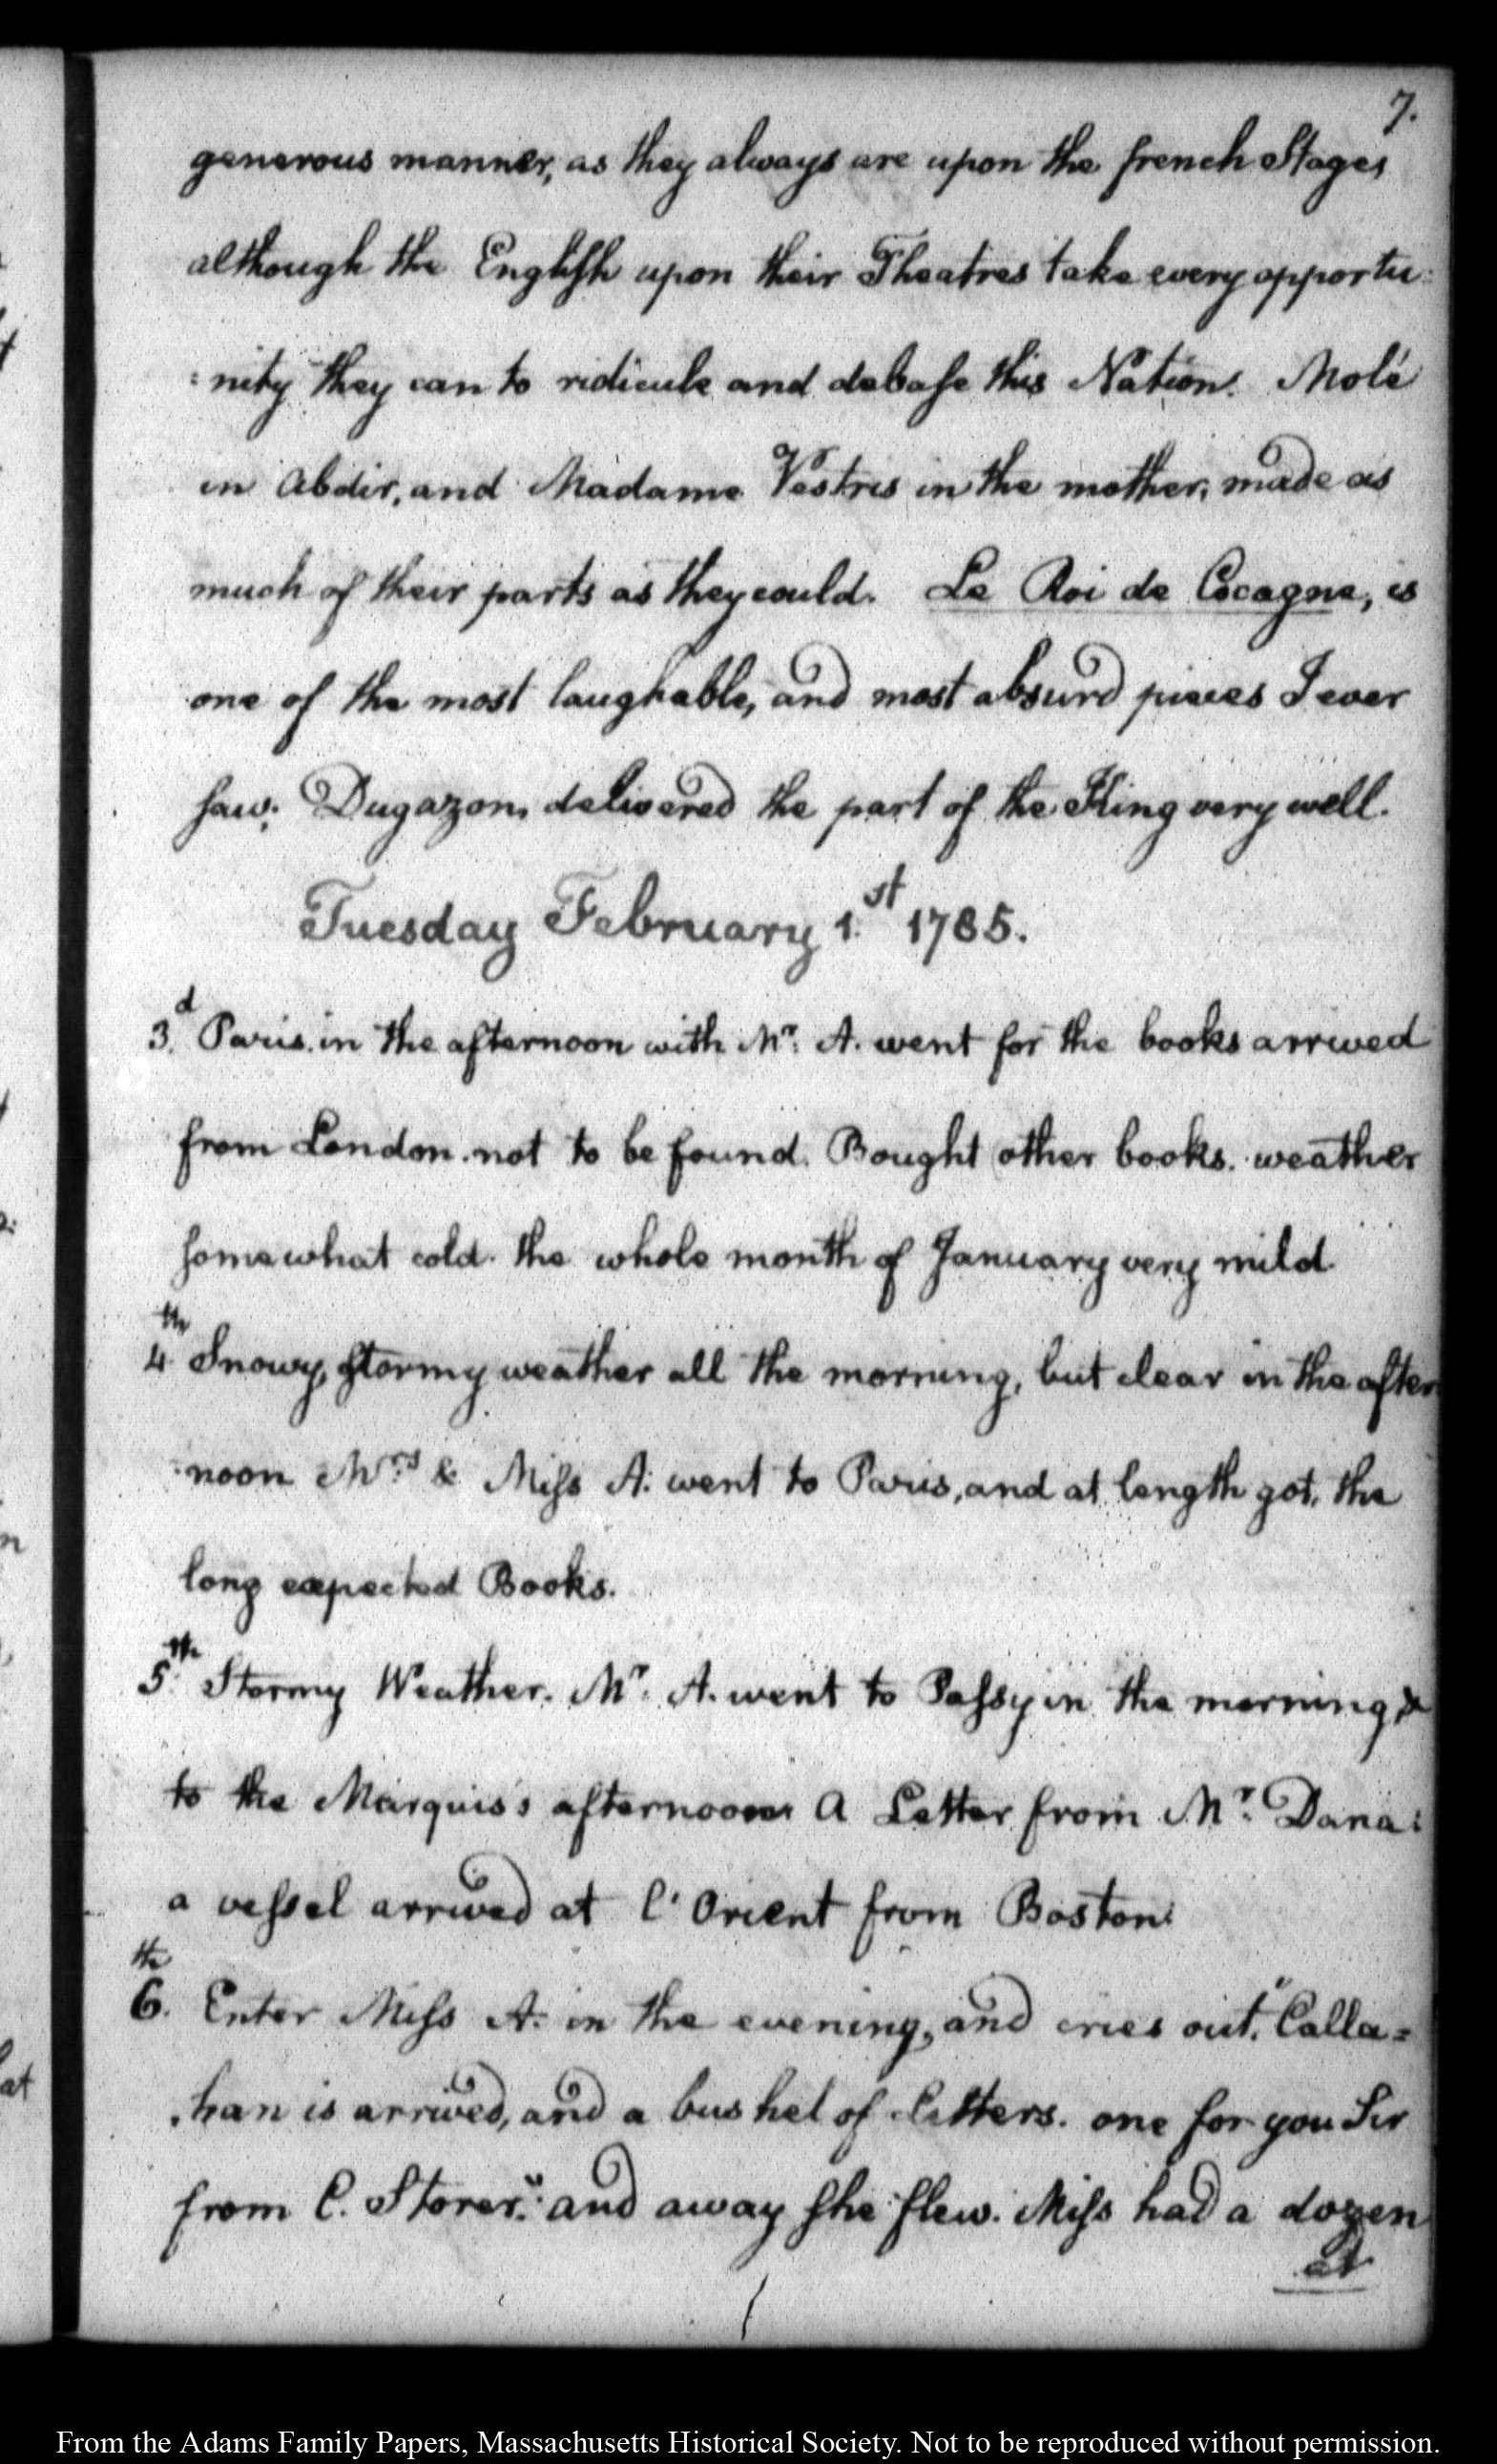 7.
generous manner, as they always are upon the french Stage,
although the English upon their Theatres take every opportu:
:nity they can to ridicule and debase this Nation. Molé
in Abdir, and Madame Vestris in the mother, made as
much of their parts as they could. Le Roi de Cocagne, is
one of the most laughable, and most absurd pieces I ever
saw; Dugazon, delivered the part of the King very well.
Tuesday February 1.st 1785.
3.d Paris. in the afternoon with Mr. A. went for the books arrived
from London. not to be found. Bought other books. weather
somewhat cold. the whole month of January very mild.
4th Snowy, stormy weather all the morning, but clear in the after
noon Mrs. & Miss A. went to Paris, and at length got, the
long expected Books.
5.th Stormy Weather. Mr. A. went to Passy in the morning &
to the Marquis's afternoon A Letter from Mr. Dana:
a vessel arrived at l'Orient from Boston.
6.th Enter Miss A. in the evening, and cries out. "Calla=
han is arrived, and a bushel of Letters. one for you Sir
from C. Storer." and away she flew. Miss had a dozen
at
From the Adams Family Papers, Massachusetts Historical Society. Not to be reproduced without permission.